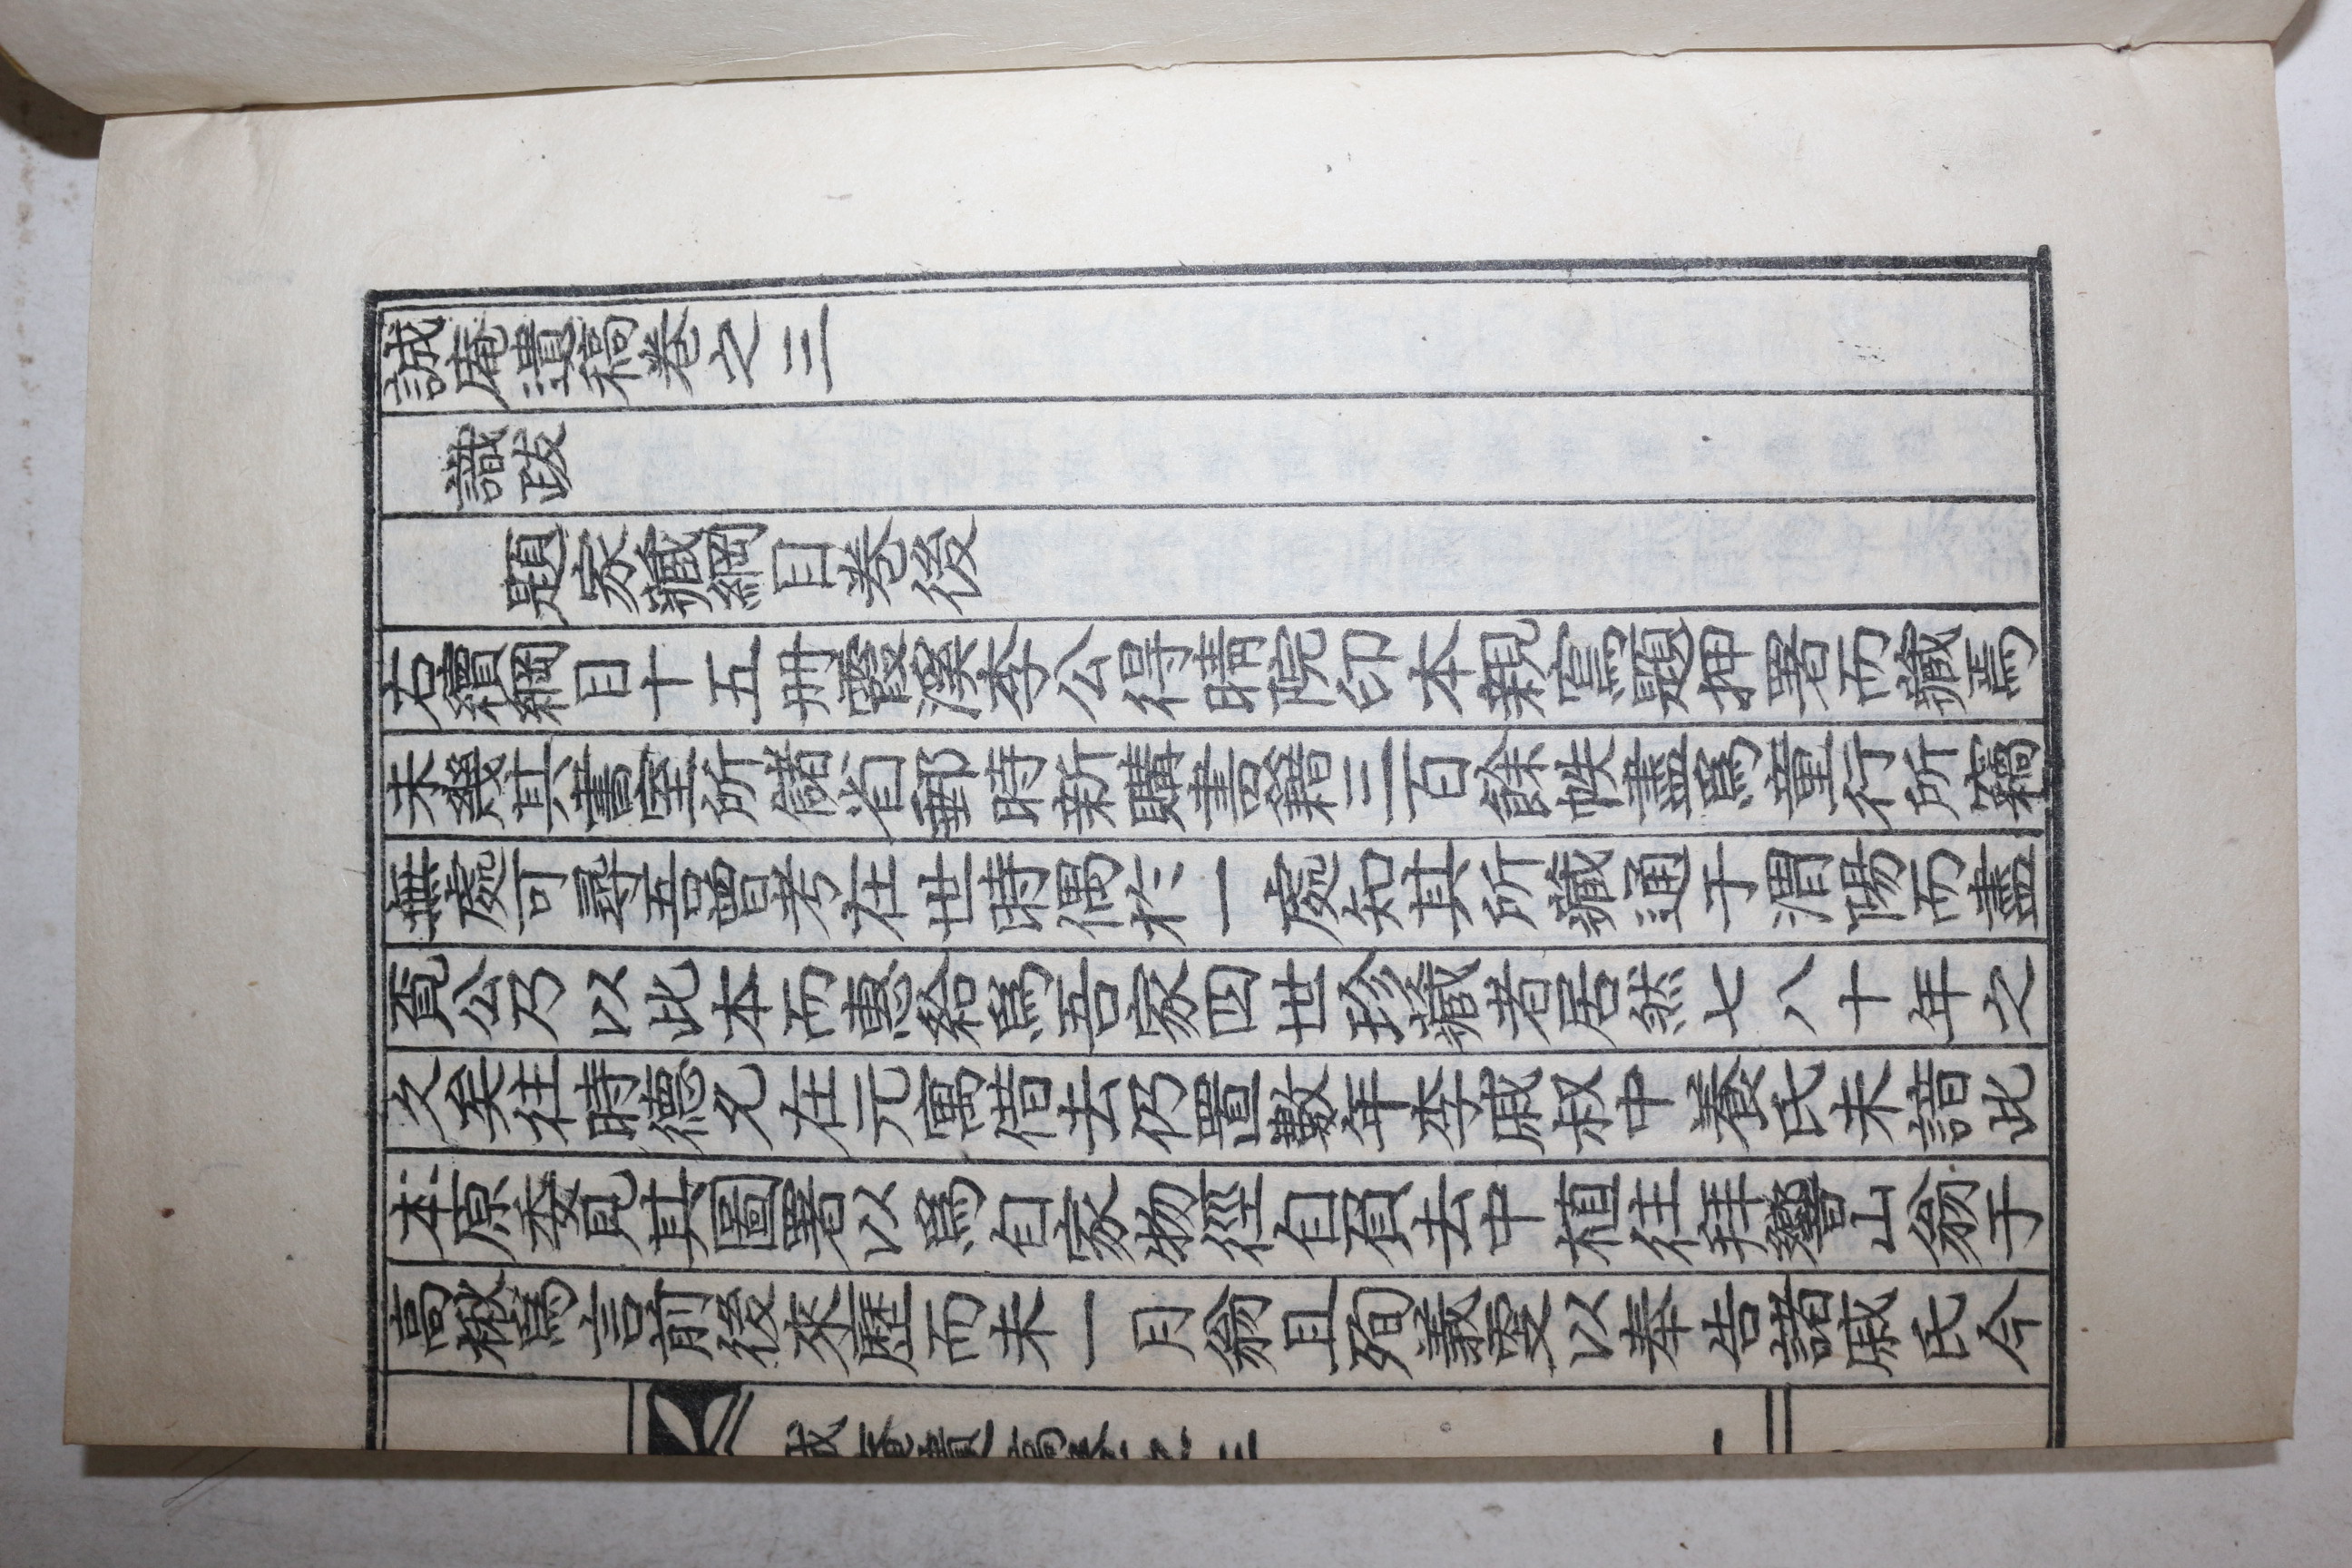 誠庵遺稿卷之三
識跋
題家藏綱目卷後
右續綱目十五冊霞溪李公得請院印本親寫題押署而藏焉
未幾其書室所儲省郵時新購書籍三百餘帙盡爲童行所竊
無處可尋吾曾考在世時偶於一處知其所藏通于渭陽而盡
覓公乃以此本而惠給爲吾家四世珍藏者居然七八十年之
久矣往時德允在元寓借去仍置數年李戚叔中養氏未諳此
本原委見其圖署以爲自家物徑自頁去中植往拜響山翁于
高椒爲言前後來歷而未一月翁且殉義愛以奉告諸戚氏今
誠庵遺稿卷之三 一